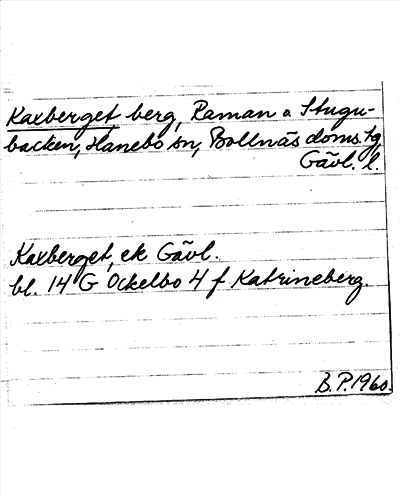 Kaxberget berg, Raman o. Stugu-
backen, Hanebo sn, Bollnäs doms.tg
Gävl. l.
Kaxberget, ek Gävl.
bl. 14 G Ockelbo 4 f Katrineberg.
B.P. 1960.